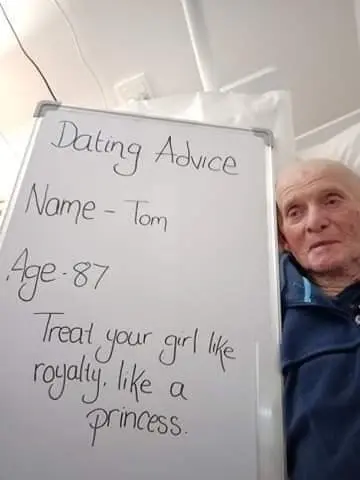 Dating Advice
Name - Tom
Age - 87
Treat your girl like
royalty. like a
princess.